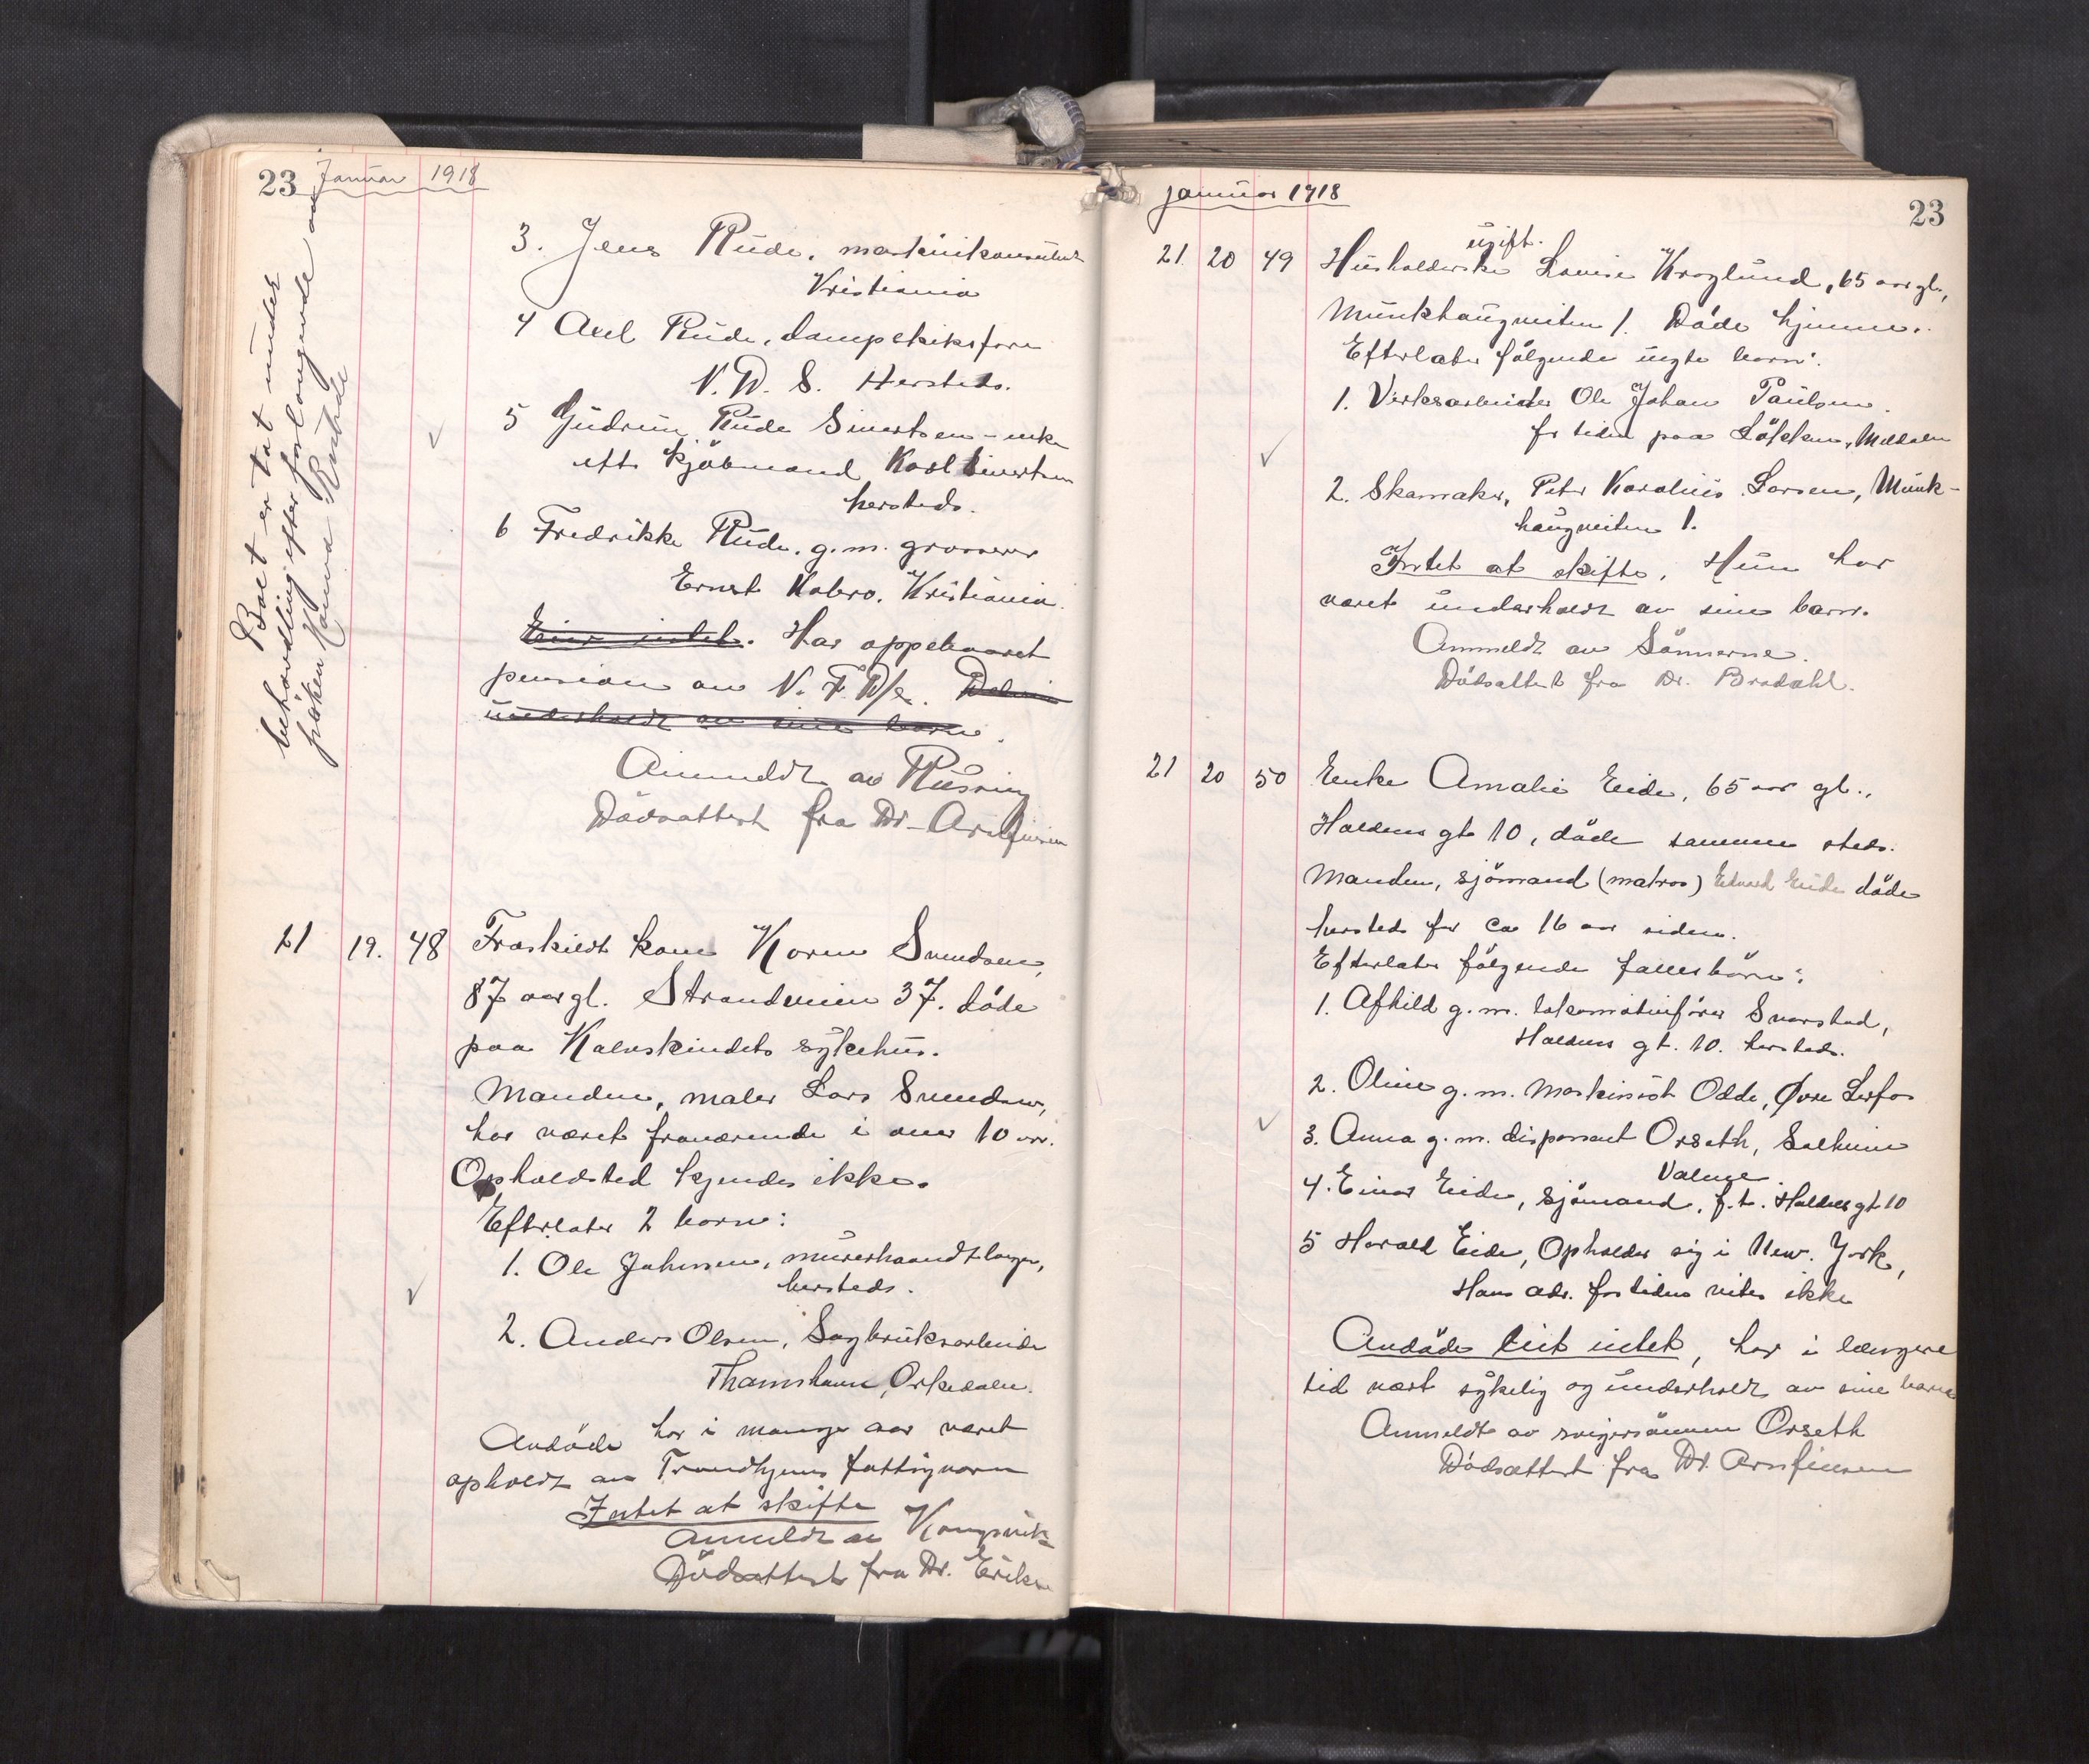 23 Januar 1918
Boet er tat under
behandling efter forlangende av
frøken Hanna Rude
3. Jens Rude, maskinkonsulent
Kristiania
4 Axel Rude, dampskibsfører
N. D. S. Hersteds.
5 Gudrun Rude Sivertsen - enke
efter kjøbmand Karl Sivertsen
hersteds.
6 Fredrikke Rude. g.m. grosserer
Ernst Kabro. Kristiania.
Eier intet. Har oppebaaret
pension av N. F. D/s.
underholdt av sine barn.
Anmeldt av
Dødsattest fra Dr. Arnfinsen
21 19. 48 Fraskildt kone Karen Svendsen,
87 aar gl. Strandveien 37. døde
paa Kalvskindets sykehus.
Manden, maler Lars Svendsen,
har været fraværende i over 10 aar.
Opholdsted kjendes ikke.
Efterlater 2 barn:
1. Ole Johnsen, murerhaandtlanger,
hersteds.
2. Anders Olsen, Sagbruksarbeider
Thamshavn, Orkedalen.
Avdøde har i mange aar været
opholdt av Trondhjems fattigvæsen
Intet at skifte
Anmeldt av Kongsvik
Dødsattest fra Dr. Eriksen
januar 1918
23
ugift.
21. 20 49 Husholderske Lovise Kroglund, 65 aar gl.,
Munkhaugveiten 1. Døde hjemme.
Efterlater følgende uegte barn:
1. Verksarbeider Ole Johan Paulsen.
for tiden paa Løkken, Meldalen
2. Skomaker, Peter Karolius Larsen, Munk-
haugveiten 1.
Intet at skifte. Hun har
været underholdt av sine barn.
Anmeldt av Sønnerne.
Dødsattest fra Dr. Bradahl.
21 20 50 Enke Amalie Eide, 65 aar gl.,
Haldens gt 10, døde samme steds.
Manden, sjømand (matros) Edvard Eide døde
hersteds for ca 16 aar siden.
Efterlater følgende fællesbørn:
1. Afhild g. m. lokomotivfører Svorstad,
Haldens gt. 10. hersteds.
2. Oline g. m. Maskinist Odde, Øvre Lerfos
3. Anna g. m. disponent Orseth, Solheim
Valene.
4. Einar Eide, sjømand, f.t. Haldens gt 10
5 Harald Eide, Opholder sig i New. York,
Hans adr. for tiden vites ikke
Avdøde eiet intet, har i længere
tid vært sykelig og underholdt av sine barn
Anmeldt av svigersønnen Orseth
Dødsattest fra Dr. Arnfinsen